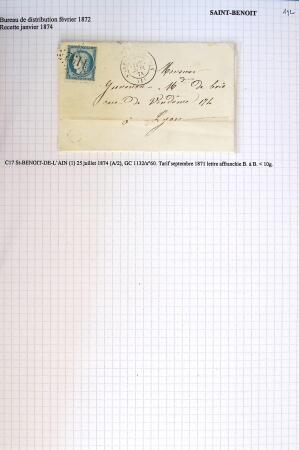 SAINT-BENOIT
192
Bureau de distribution février 1872
Recette janvier 1874
Monsieur
Guvernon - Md de bois
rue de Vendôme 174
à Lyon
C17 St-BENOIT-DE-L'AIN (1) 25 juillet 1874 (A/2), GC 1132/n°60. Tarif septembre 1871 lettre affranchie B. à B. < 10g.